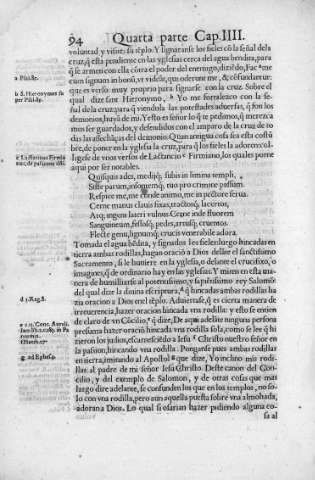 94 Quarta parte Cap.IIII.
voluntad y visite su tēplo. Y signaranse los fieles cō la señal de la
cruz, q̃ esta pendiente en las yglesias cerca del agua bendita, para
q̃ se armen con ella cōtra el poder del enemigo, diziēdo, Fac me
cum signum in bonū, vt videāt, qui oderunt me, & cōfundantur:
que es verso muy proprio para signarse con la cruz. Sobre el
qual dize sant Hieronymo, Yo me fortalezco con la señ
al de la cruz para q̃ viendola las potestades aduersas, q̃ son los
demonios, huyā de mi. Y esto es señor lo q̃ te pedimos, q̃ merezca
mos ser guardados, y defendidos con el amparo de la cruz de to
das las assechāças del demonio. Quan antigua cosa sea esta costū
bre, de poner en la yglesia la cruz, para q̃ los fieles la adoren, col
ligese de vnos versos de Lactancio Firmiano, los quales pone
aqui por ser notables.
Quisquis ades, mediiq̃; subis in limina templi,
Siste parum, insontemq̃; tuo pro crimine passum.
Respice me, me conde animo, me in pectore serua.
Cerne manus clauis fixas, tractosq̃; lacertos,
Atq; ingens lateri vulnus Cerne inde fluorem
Sanguineum, fossosq̃; pedes, artusq̃; cruentos.
Flecte genu, lignumq̃; crucis venerabile adora.
Tomada el agua bēdita, y signados los fieles luego hincadas en
tierra ambas rodillas, hagan oracion a Dios delāte el sanctissimo
Sacramento, si le huuiere en la yglesia, o delante el crucifixo, o
imagines, q̃ de ordinario hay en las yglesias. Y miren en esta ma
nera de humillarse al potentissimo, y sapiētissimo rey Salomō
del qual dize la diuina escriptura, q̃ hincadas ambas rodillas ha
zia oracion a Dios en el tēplo. Aduiertase, q̃ es cierta manera de
irreuerencia, hazer oracion hincada vna rodilla: y esto se entien
de claro de vn Cōcilio, q̃ dize, De aqui adelāte ninguna persona
presuma hazer oraciō hincada vna rodilla sola, como se lee q̃ hi
zieron los judios, escarneciēdo a Iesu Christo nuestro señor en
la passion, hincando vna rodilla. Ponganse pues ambas rodillas
en tierra, imitando al Apostol que dize, Yo inclino mis rodi
llas al padre de mi señor Iesu Christo. Deste canon del Con
cilio, y del exemplo de Salomon, y de otras cosas que mas
largo dire adelante, se confunden los que en los templos, no so
lo con vna rodilla, pero aun aquella puesta sobre vna almohada,
adoran a Dios. Lo qual si osarian hazer pidiendo alguna co
sa al
a Psal.85.
b S. Hieronymus su
per Psal.85.
c Lactantius Firmia
nus, de passione dñi.
d 3.Reg.8.
g ad Ephes.3.